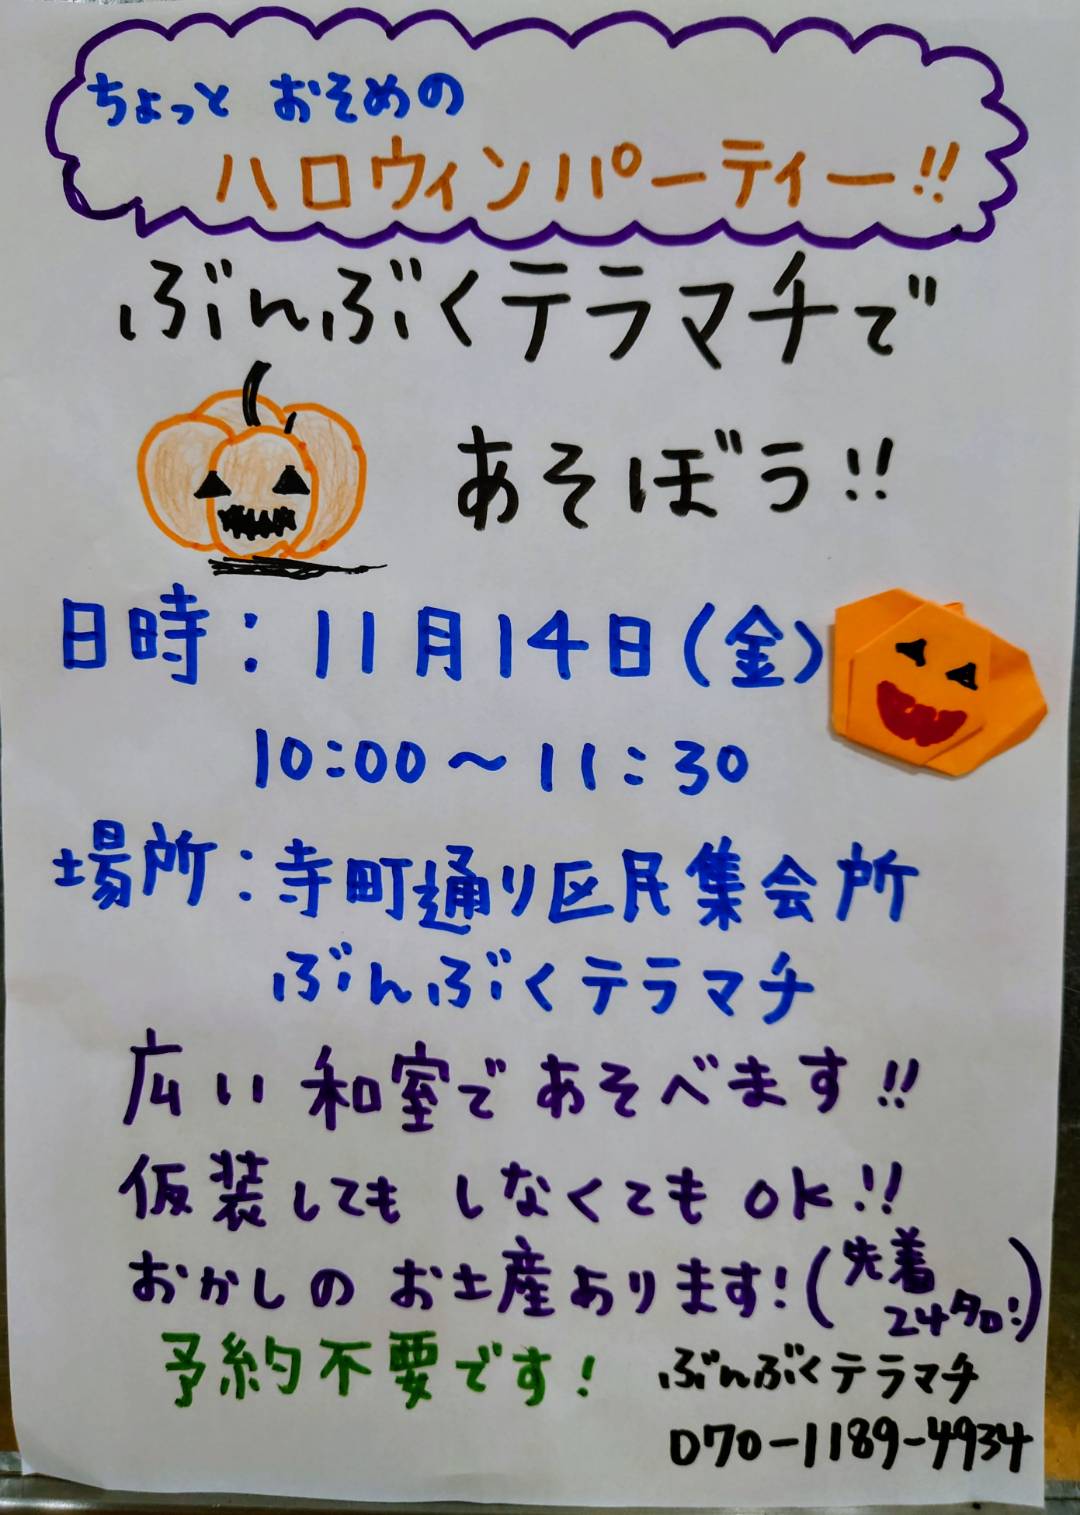 ちょっと おそめの
ハロウィンパーティー!!
ぶんぶくテラマチで
あそぼう!!
日時:11月14日(金)
10:00~11:30
場所:寺町通り区民集会所
ぶんぶくテラマチ
広い和室であそべます!!
仮装しても しなくても OK!!
おかしの お土産あります!(先着
24名!)
予約不要です!
ぶんぶくテラマチ
070-1189-4934